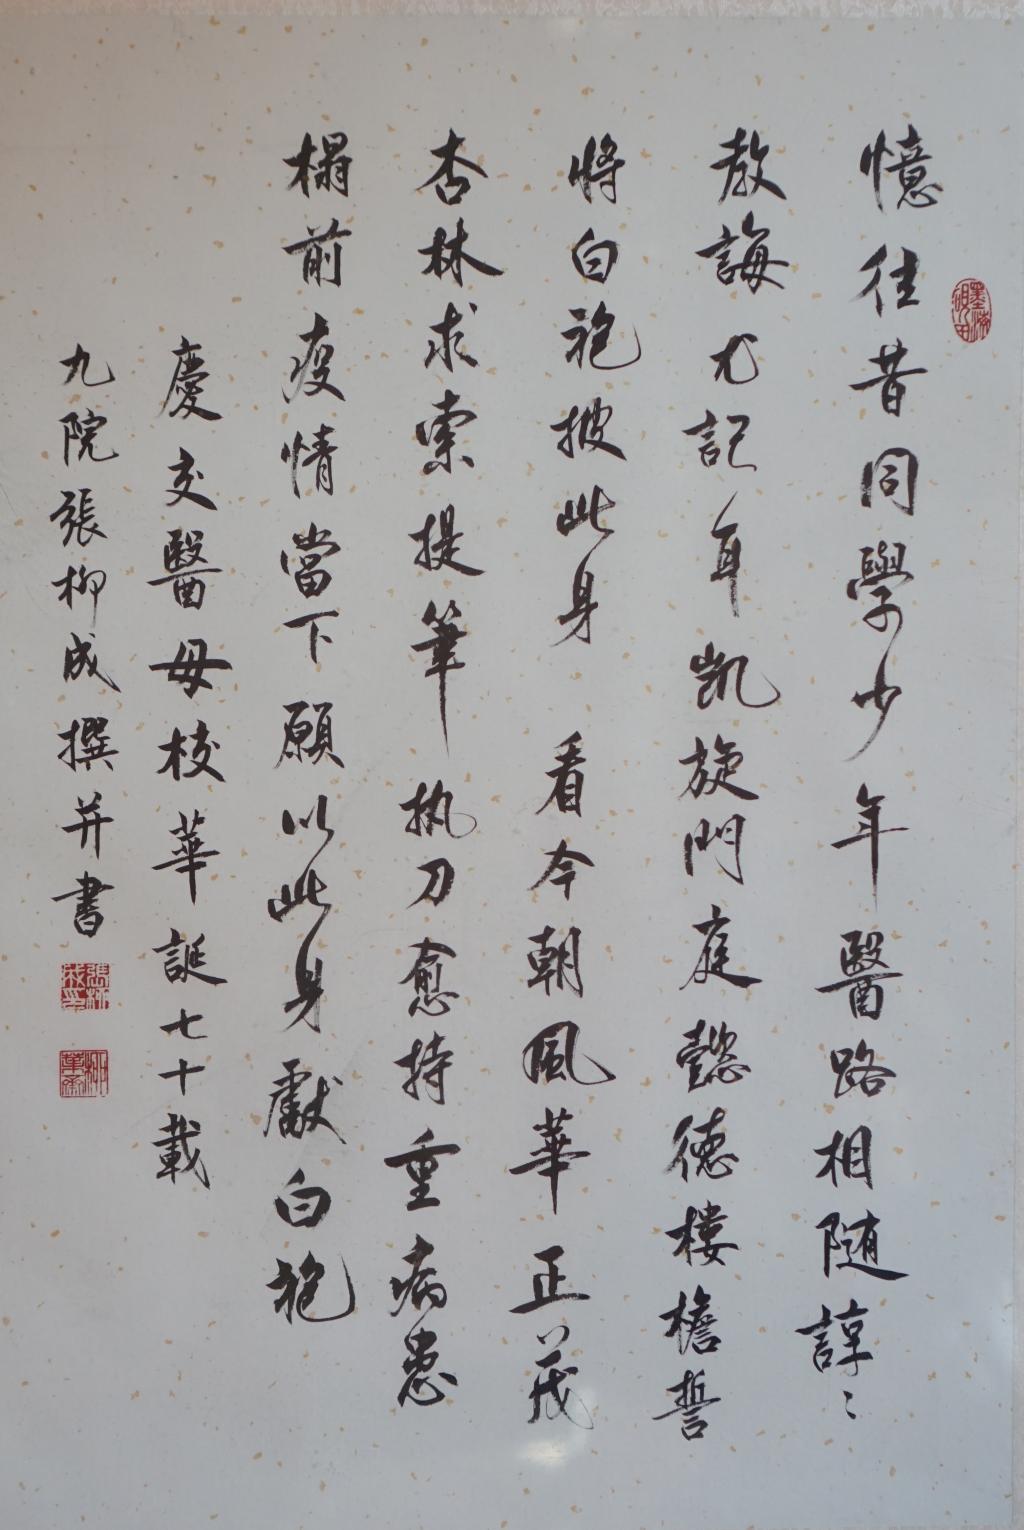 憶往昔同學少年醫路相随諄〻
教誨尤記耳凱旋門庭懿德樓檐誓
將白袍披此身看今朝風華正茂
杏林求索提筆执刀愈持重病患
榻前疫情當下願以此身獻白袍
慶交醫母校華誕七十載
九院張柳成撰并書